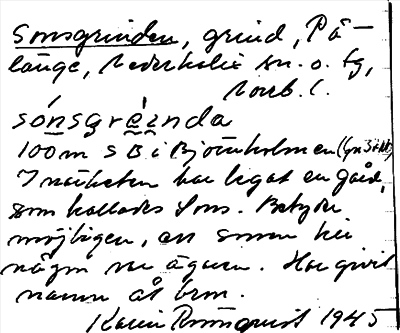 Sonsgrinden, grind, På-
länge, Nederkalix sn. o. tg,
Norrb. l.
sónsgrèenda
100 m S B i Björnholmen
I närheten har legat en gård,
som kallades Sons. Betyder
möjligen, en sonen här
någon ägaren. Har givit
namn åt
Karin Rönnquist 1945